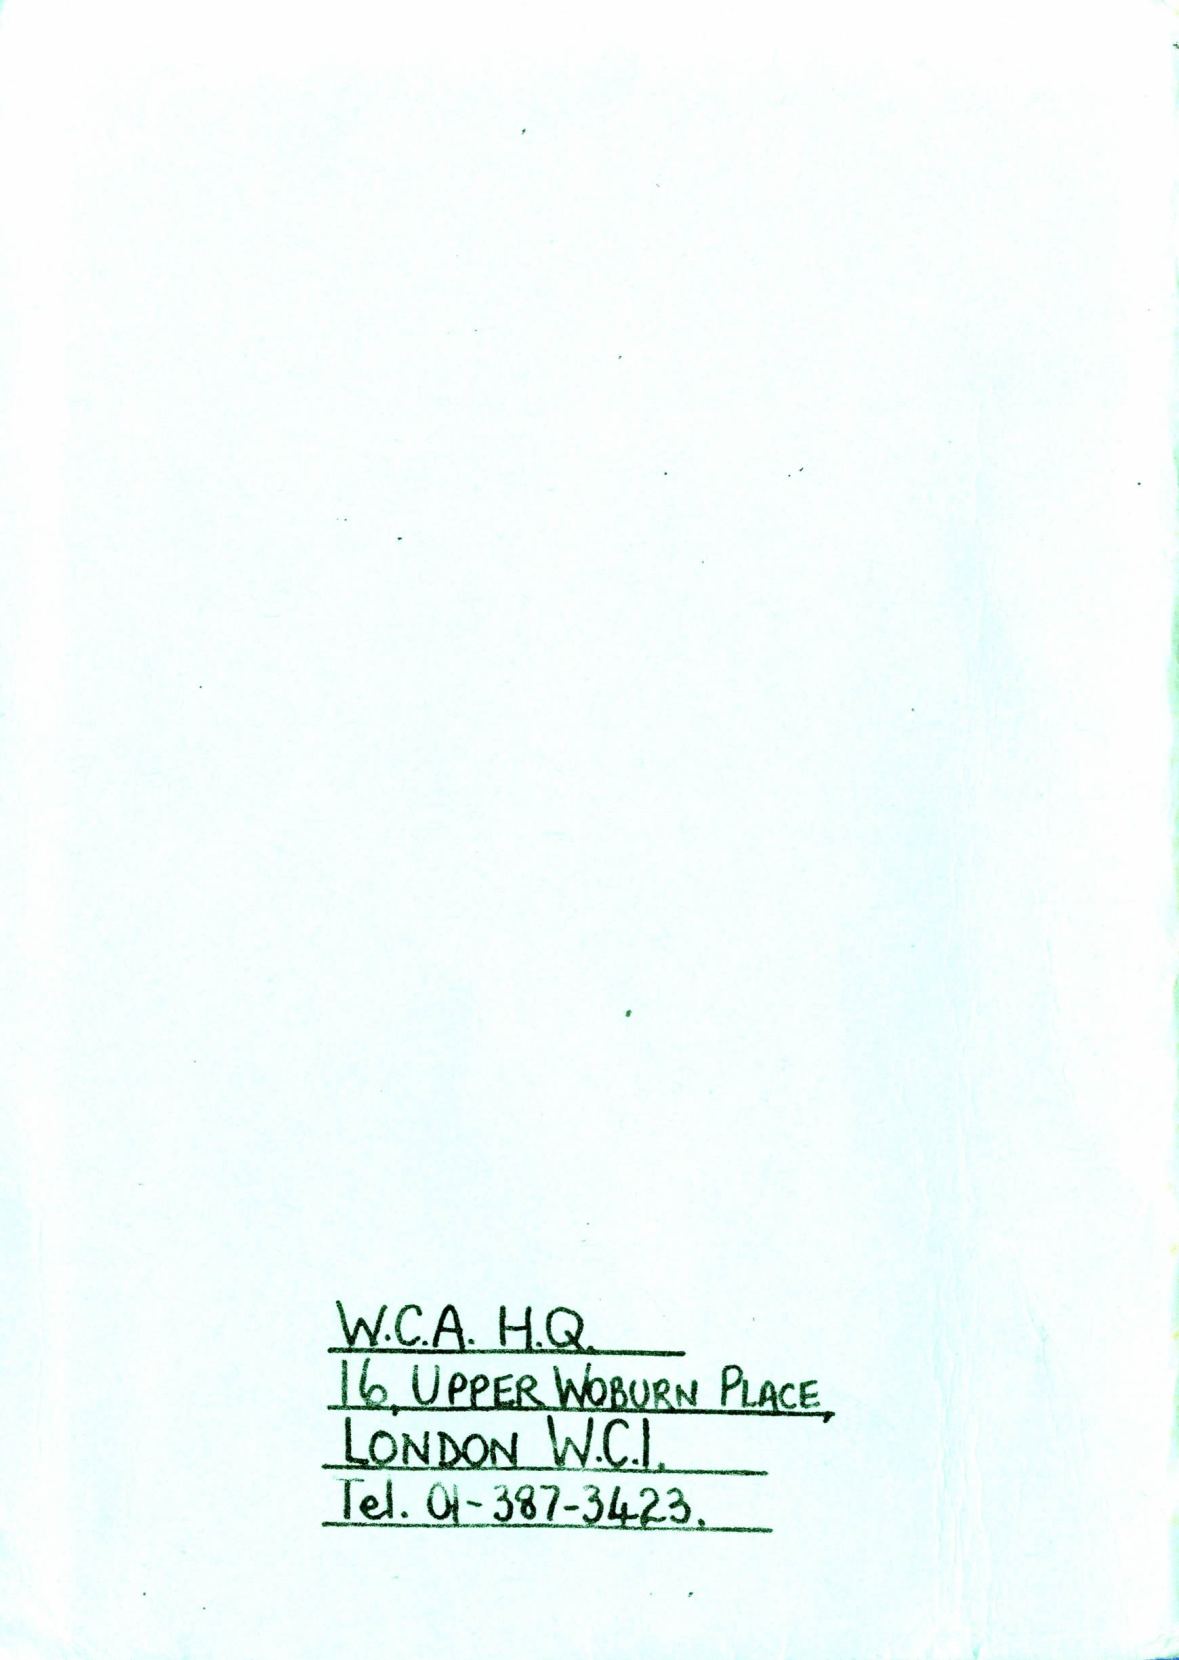 W.C.A. H.Q.
16, UPPER WOBURN PLACE,
LONDON W.C.1.
Tel. 01-387-3423.